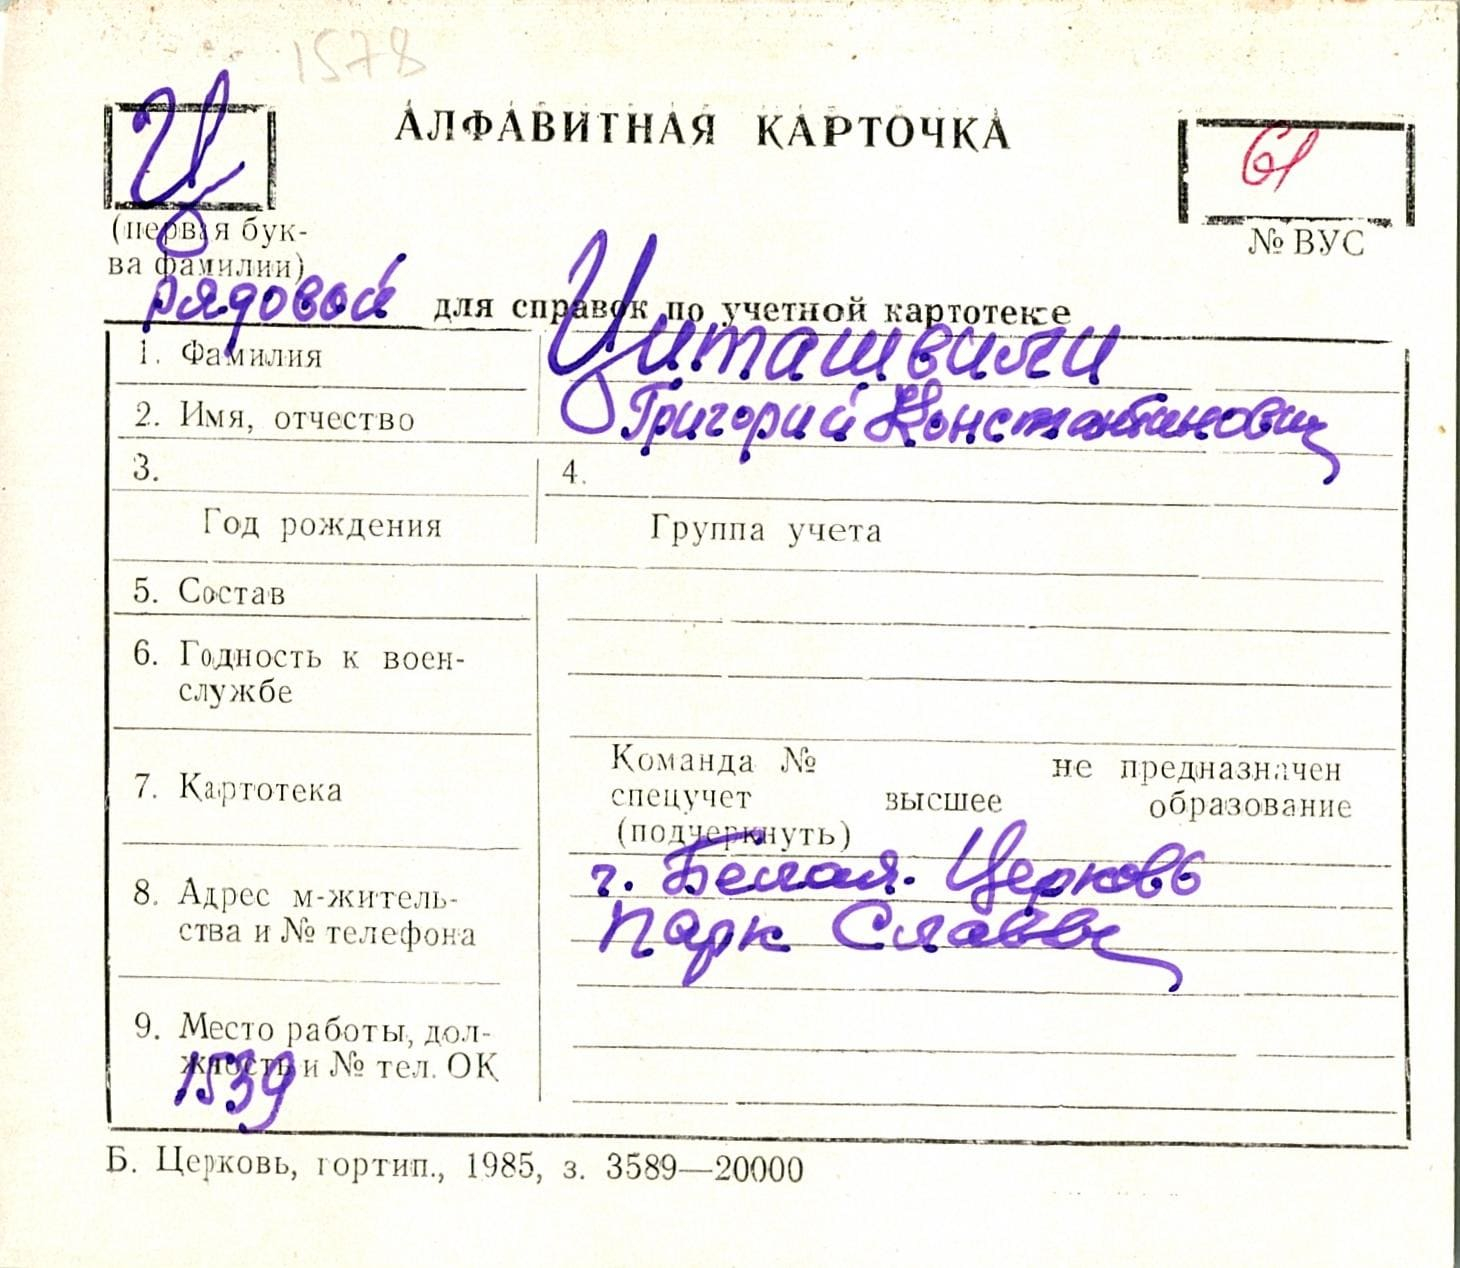 1578
Ц
АЛФАВИТНАЯ КАРТОЧКА
61
(первая бук-
ва фамилии)
№ ВУС
рядовой
для справок по учетной картотеке
1. Фамилия
Циташвили
2. Имя, отчество
Григорий Константинович
3.
4.
Год рождения
Группа учета
5. Состав
6. Годность к воен-
службе
7. Картотека
Команда № не предназначен
спецучет высшее образование
(подчеркнуть)
8. Адрес м-житель-
ства и № телефона
г. Белая. Церковь
Парк Славы
9. Место работы, дол-
жность и № тел. ОК
1539
Б. Церковь, гортип., 1985, з. 3589—20000